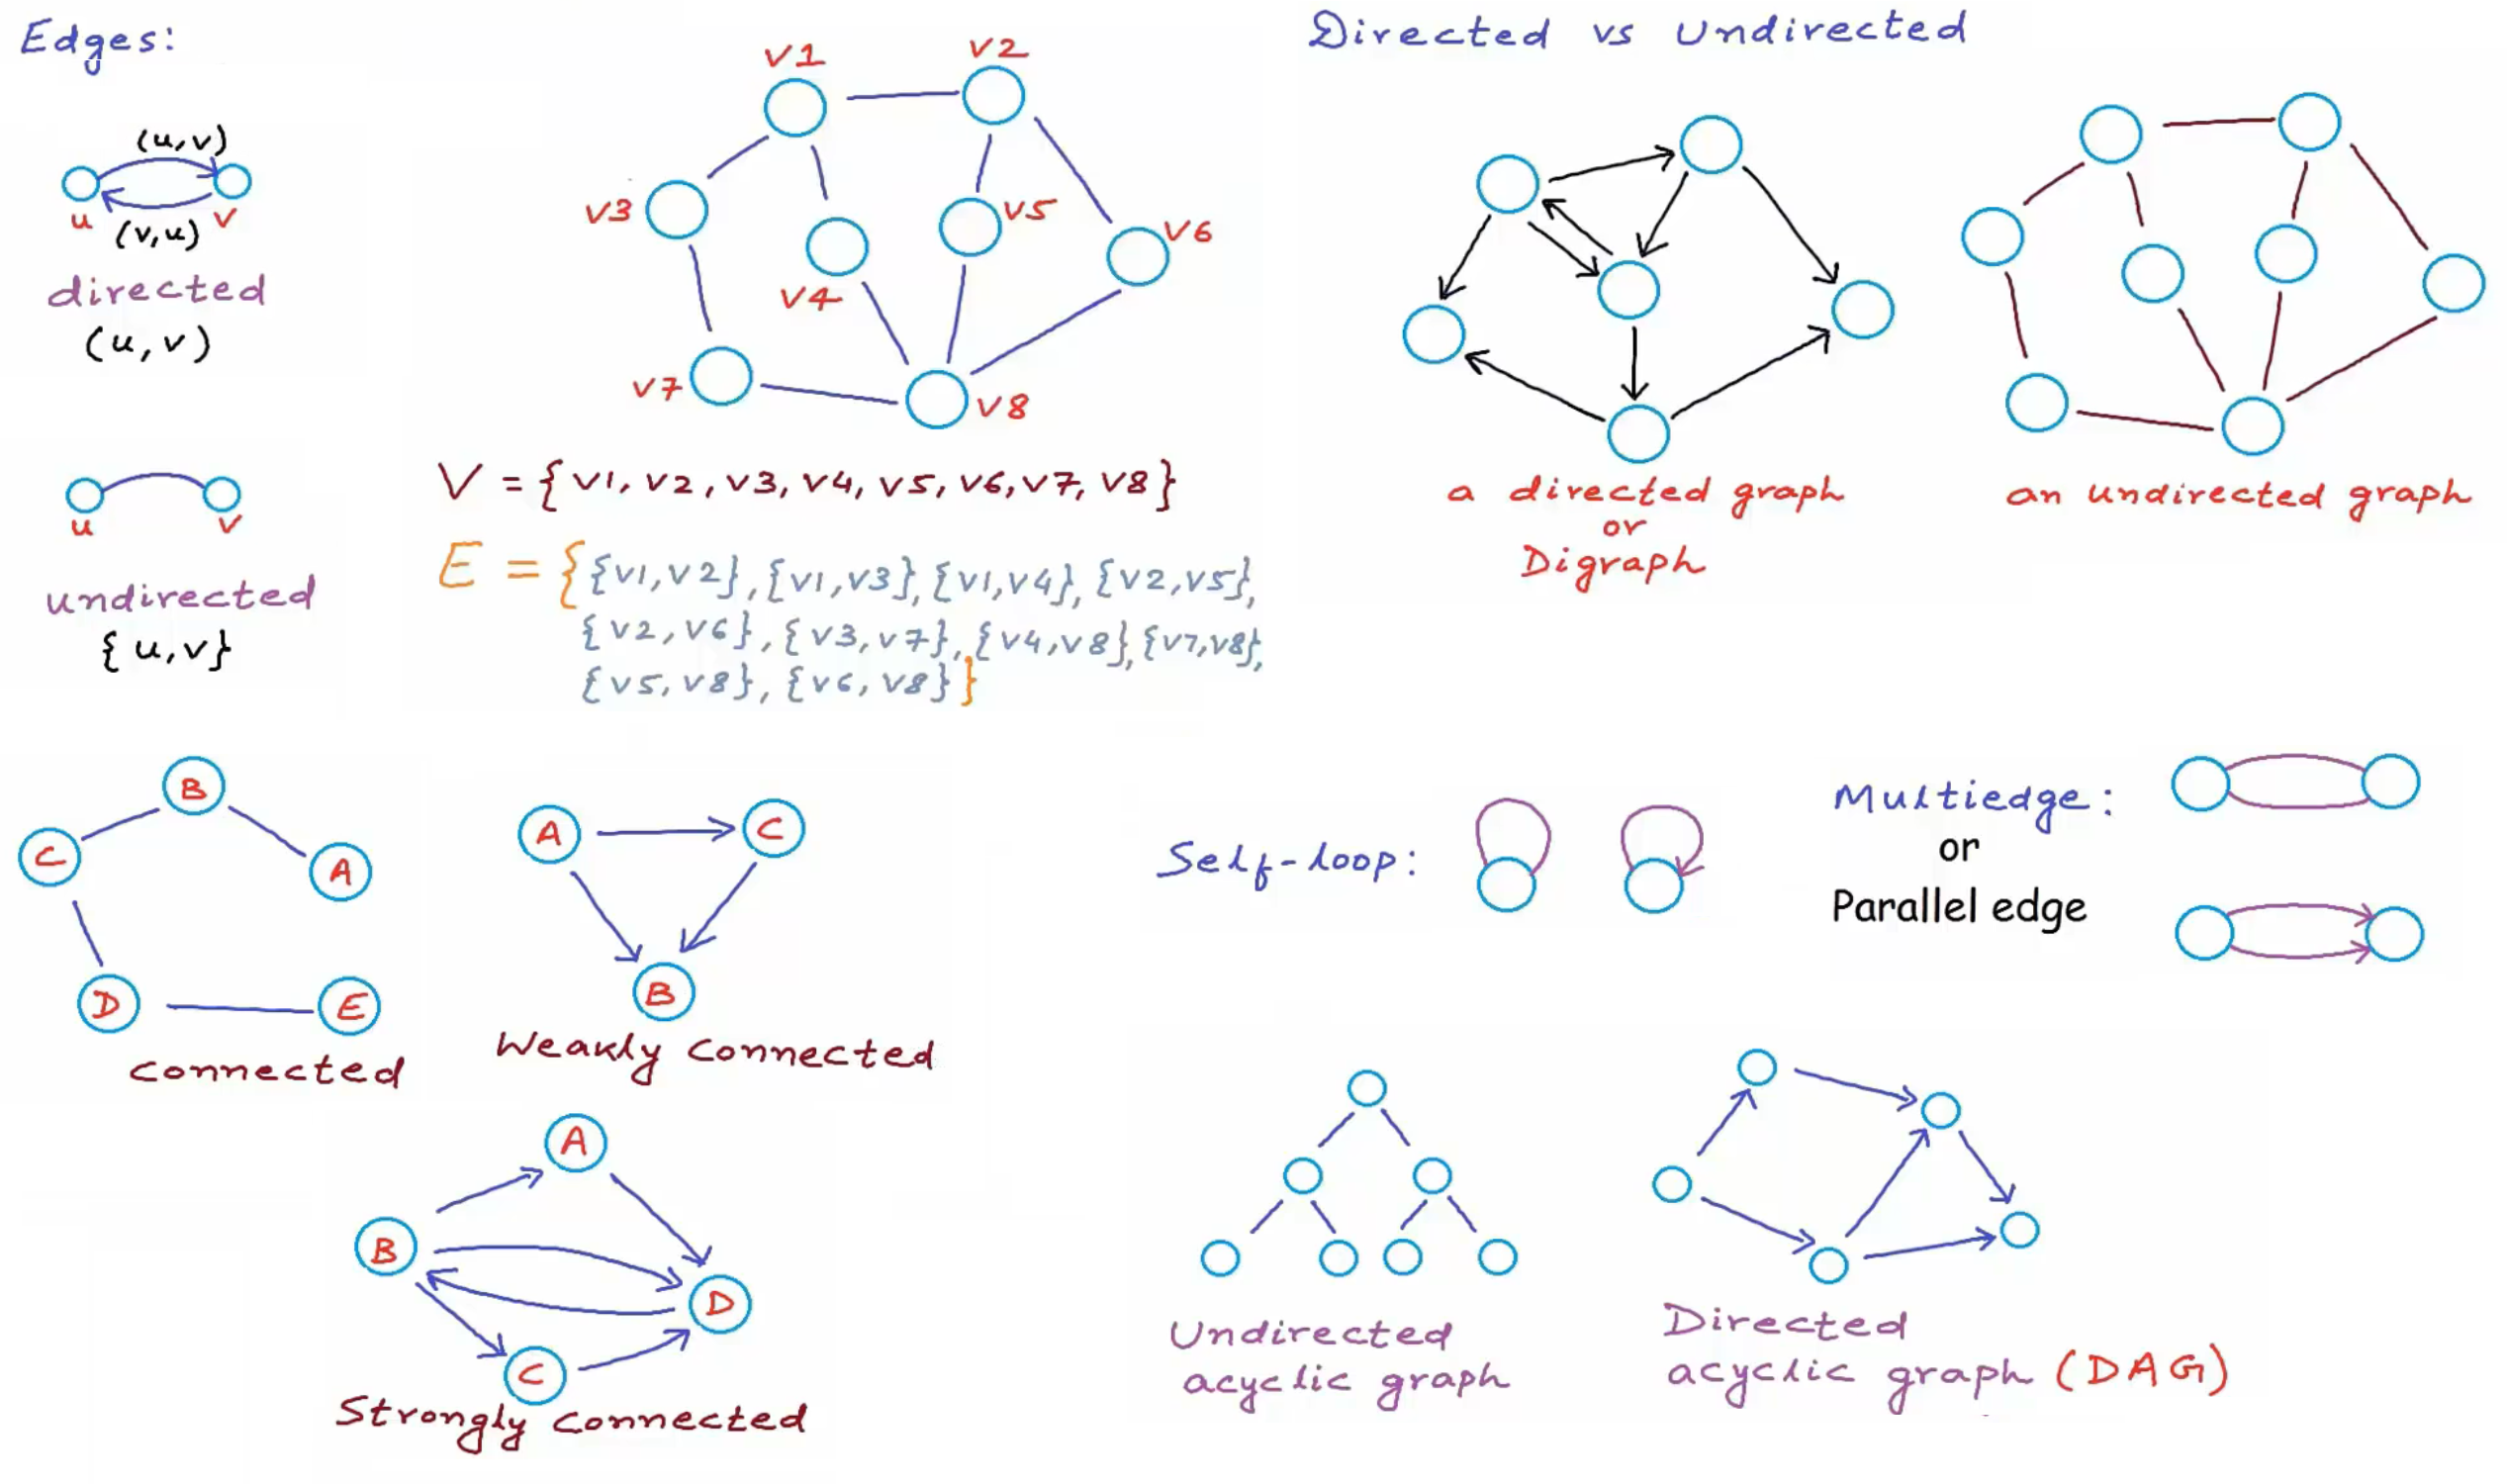 Edges:
(u,v)
u
v
(v,u)
directed
(u,v)
u
v
undirected
{u,v}
v1
v2
v3
v4
v5
v6
v7
v8
V = {v1, v2, v3, v4, v5, v6, v7, v8}
E = {{v1,v2}, {v1,v3}, {v1,v4}, {v2,v5},
{v2,v6}, {v3,v7}, {v4,v8}, {v7,v8},
{v5,v8}, {v6,v8}}
Directed vs Undirected
a directed graph
or
Digraph
an undirected graph
B
C
A
D
E
connected
A
C
B
Weakly connected
A
B
D
C
Strongly connected
Self-loop:
Multiedge:
or
Parallel edge
Undirected
acyclic graph
Directed
acyclic graph (DAG)